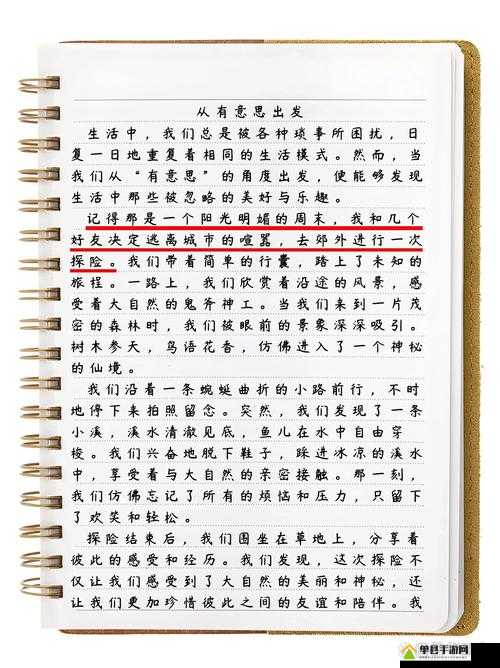 从有意思出发
生活中，我们总是被各种琐事所困扰，日
复一日地重复着相同的生活模式。然而，当
我们从“有意思”的角度出发，便能够发现
生活中那些被忽略的美好与乐趣。
记得那是一个阳光明媚的周末，我和几个
好友决定逃离城市的喧嚣，去郊外进行一次
探险。我们带着简单的行囊，踏上了未知的
旅程。一路上，我们欣赏着沿途的风景，感
受着大自然的鬼斧神工。当我们来到一片茂
密的森林时，我们被眼前的景象深深吸引。
树木参天，鸟语花香，仿佛进入了一个神秘
的仙境。
我们沿着一条蜿蜒曲折的小路前行，不时
地停下来拍照留念。突然，我们发现了一条
小溪，溪水清澈见底，鱼儿在水中自由穿
梭。我们兴奋地脱下鞋子，踩进冰凉的溪水
中，享受着与大自然的亲密接触。那一刻，
我们仿佛忘记了所有的烦恼和压力，只留下
了欢笑和轻松。
探险结束后，我们围坐在草地上，分享着
彼此的感受和经历。我们发现，这次探险不
仅让我们感受到了大自然的美丽和神秘，还
让我们更加珍惜彼此之间的友谊和陪伴。我
单县手游网